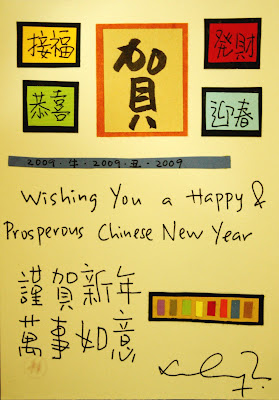 接福
恭喜
賀
発財
迎春
2009 · 牛 · 2009 · 丑 · 2009
Wishing You a Happy &
Prosperous Chinese New Year
謹賀新年
萬事如意